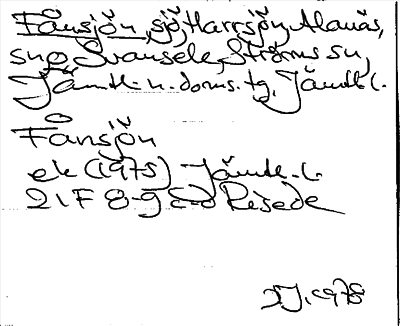 Fånsjön, sjö, Harrsjön, Alanäs,
sng Svansele, Ströms sn,
Jämtl. n. doms. tg, Jämtl. l.
Fånsjön
ek (1975) Jämtl. l.
21F 8-9 c-d Risede
1978